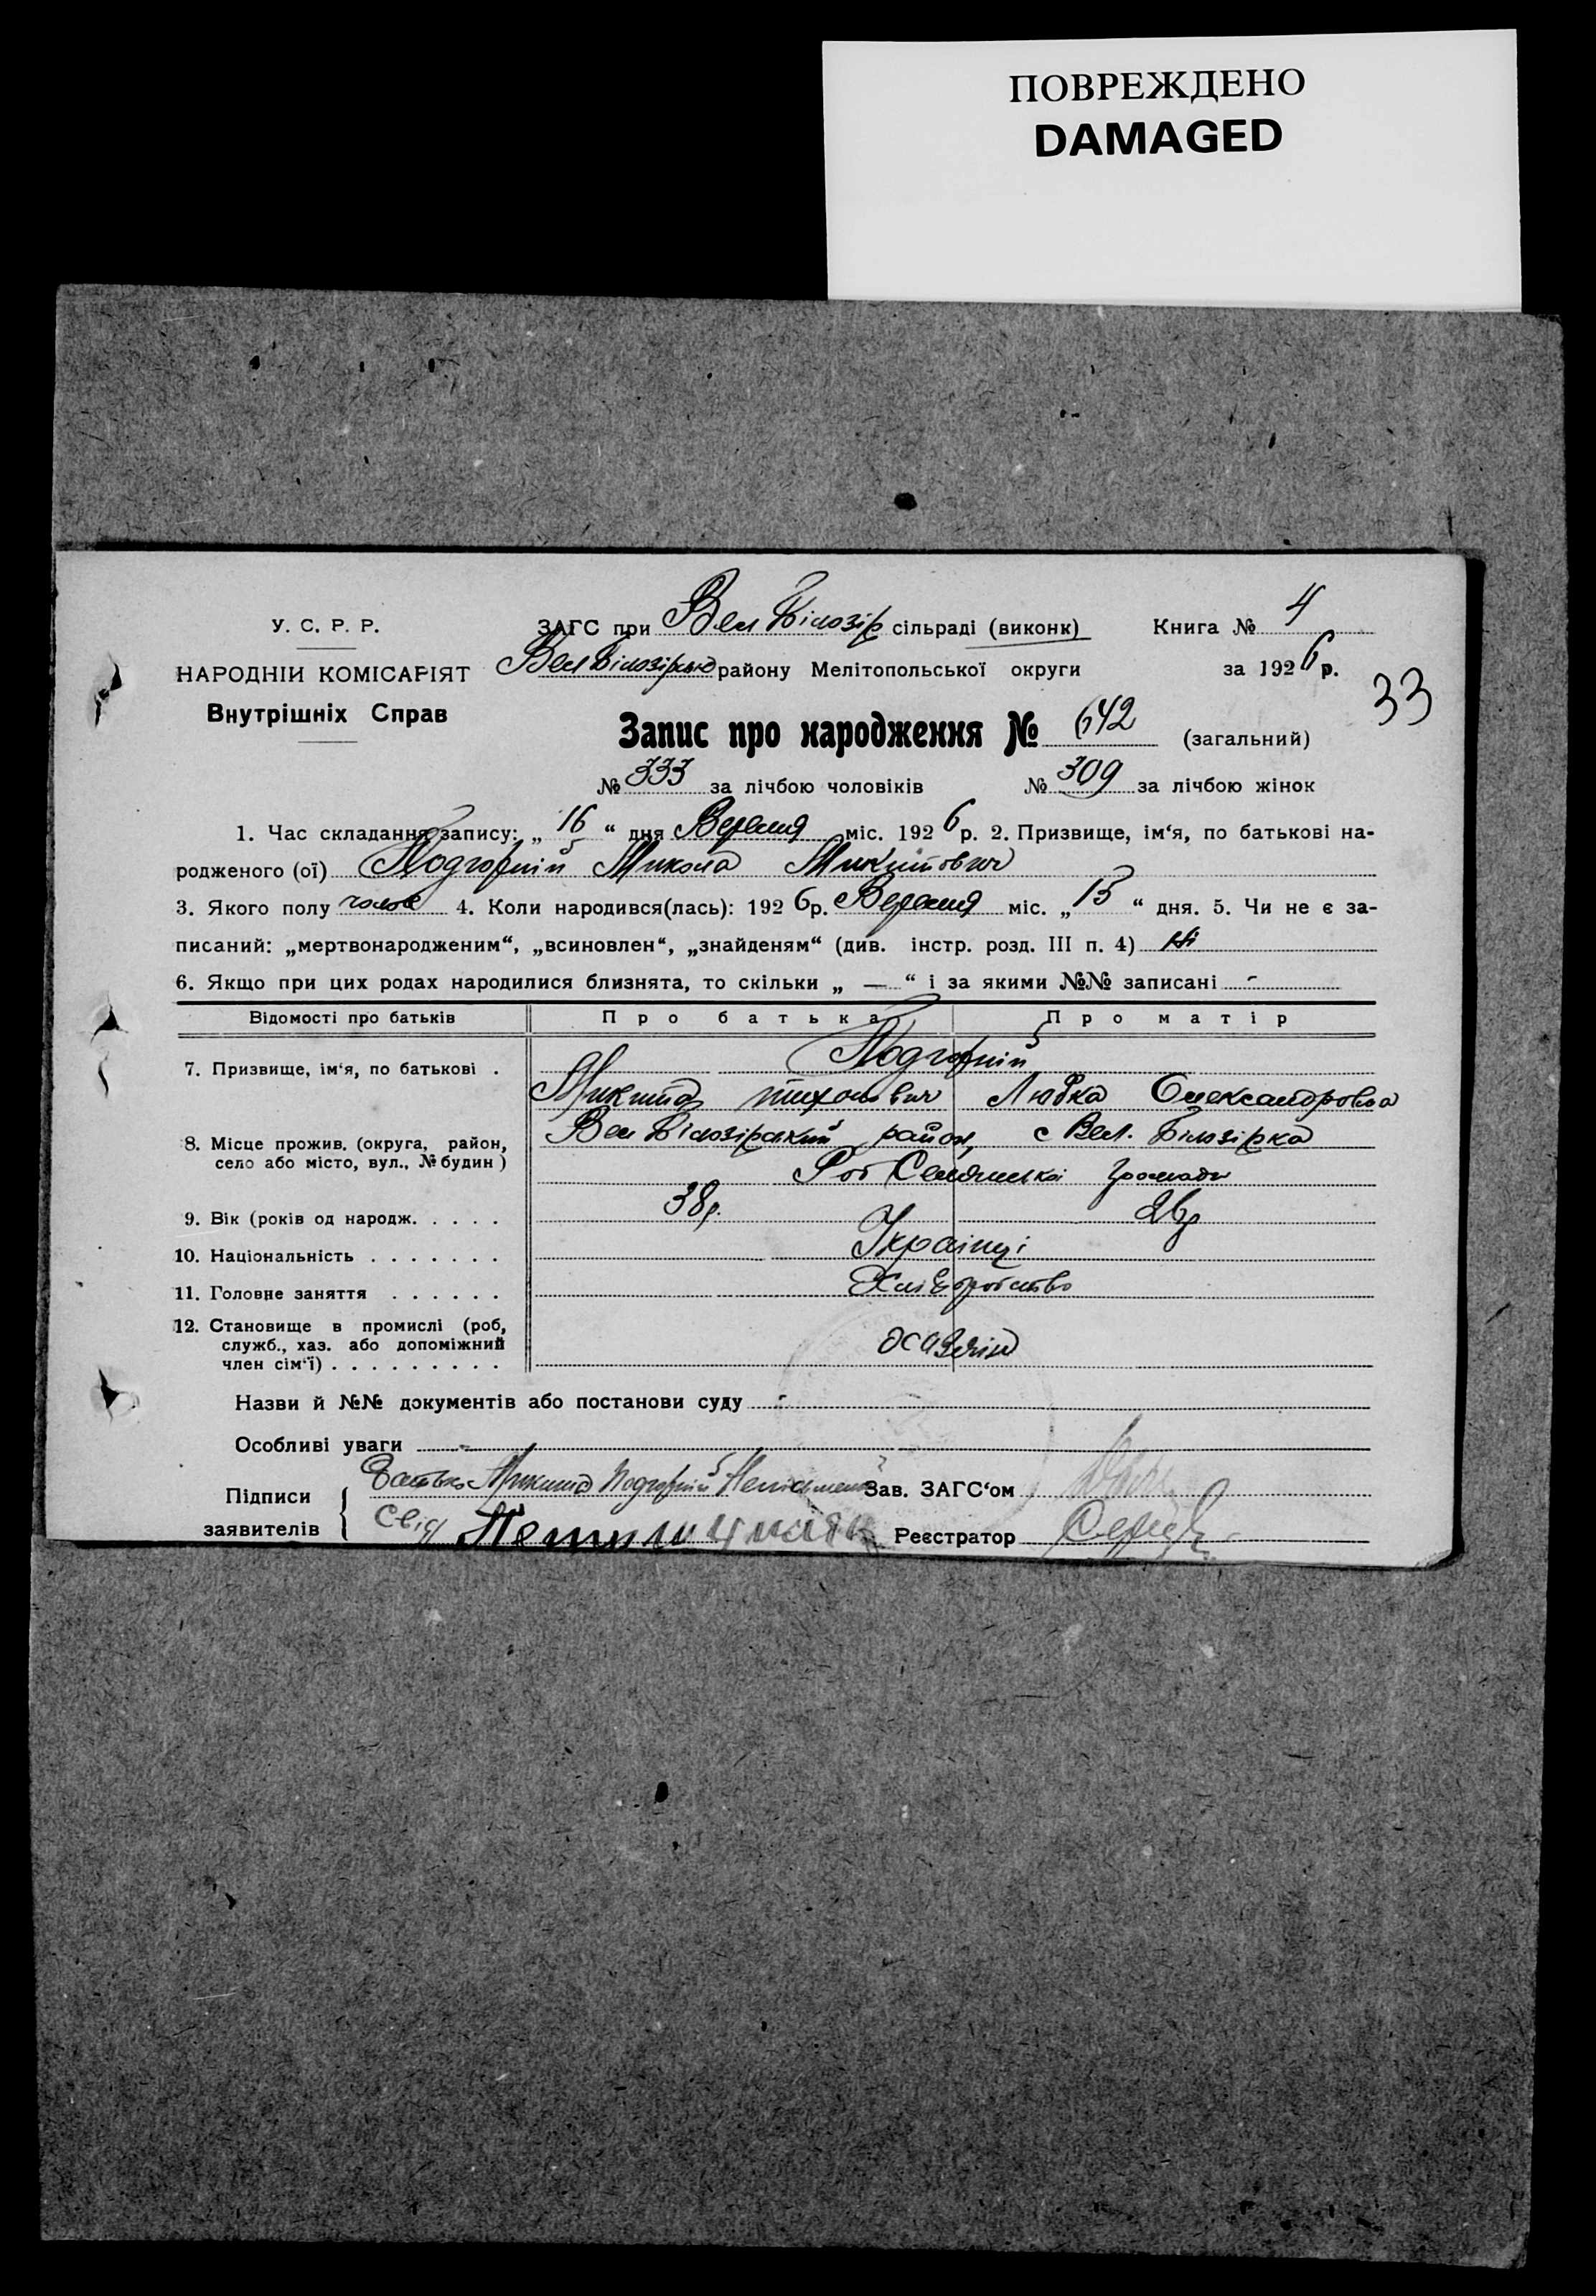 ПОВРЕЖДЕНО
DAMAGED
У. С. Р. Р.
НАРОДНІЙ КОМІСАРІЯТ
Внутрішніх Справ
ЗАГС при Вел Білозір сільраді (виконк) Книга № 4
Вел Білозірсько району Мелітопольської округи за 1926 р.
33
Запис про народження № 642 (загальний)
№ 333 за лічбою чоловіків № 309 за лічбою жінок
1. Час складання запису: „ 16 “ дня Вересня міс. 1926 р. 2. Призвище, ім‘я, по батькові на-
родженого (ої) Подгорній Микола Микитович
3. Якого полу чолов 4. Коли народився(лась): 1926 р. Вересня міс. „ 15 “ дня. 5. Чи не є за-
писаний: „мертвонародженим“, „всиновлен“, „знайденям“ (див. інстр. розд. III п. 4) Ні
6. Якщо при цих родах народилися близнята, то скільки „ — “ і за якими №№ записані -
Відомості про батьків Про батька Про матір
7. Призвище, ім‘я, по батькові . Подгорній
Микита тихонович Любка Олександровна
8. Місце прожив. (округа, район, село або місто, вул., № будин ) Вел Білозірський район, с Вел. Білозірка
громади
9. Вік (років од народж. . . . . 38р. 26р
10. Національність . . . . . . . Українці
11. Головне заняття . . . . . . Хліборобство
12. Становище в промислі (роб,
служб., хаз. або допоміжний
член сім‘ї) . . . . . . . . .
Назви й №№ документів або постанови суду -
Особливі уваги -
Підписи
заявителів
Батько Микита Подгорній Неписьмен
Свід
Зав. ЗАГС‘ом
Реєстратор